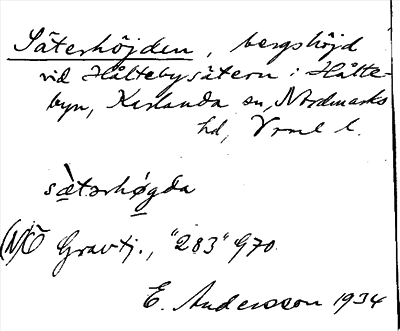 Säterhöjden, bergshöjd
vid Håltebysätern i Hålte-
byn, Karlanda sn, Nordmarks
hd, Vrml l.
sæ̀tərhøgda
Gravtj., "283" 970.
E. Andersson 1934